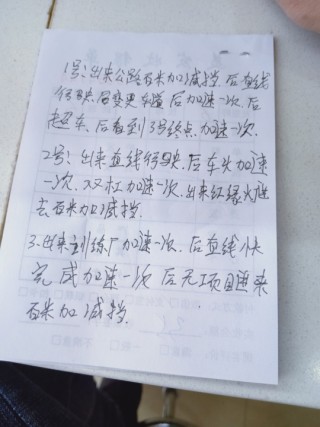 1号:出来公路百米加减挡.后直线
行驶.后变更车道 后加速一次.后
超车、后看到3号终点.加速一次.
2号:出来直线行驶.后车头加速
一次.双杠加速一次.出来红绿灯进
去百米加减挡.
3.出来训练厂加速一次.后直线快
完成加速一次 后无项目进来
百米加减挡.